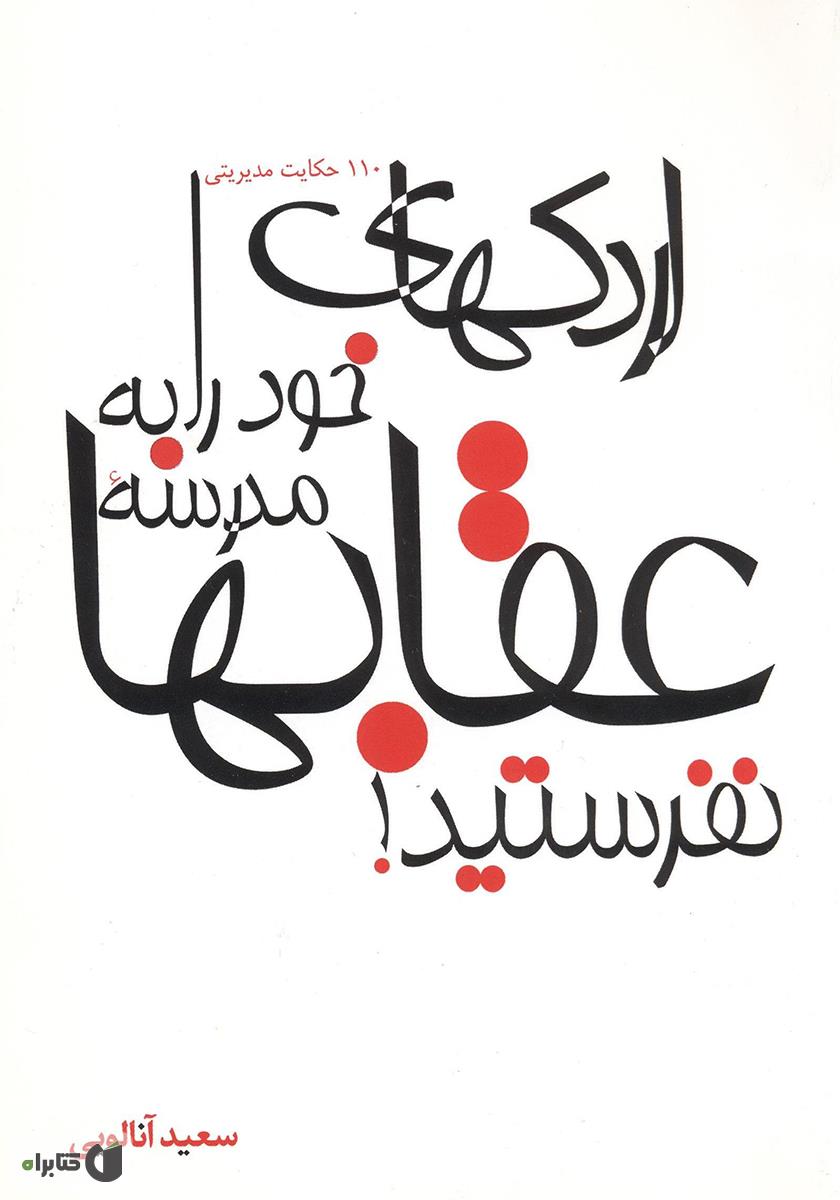 ۱۱۰ حکایت مدیریتی
اردکهای
خود را به
مدرسهٔ
عقابها
نفرستید!
سعید آنالویی
کتابراه